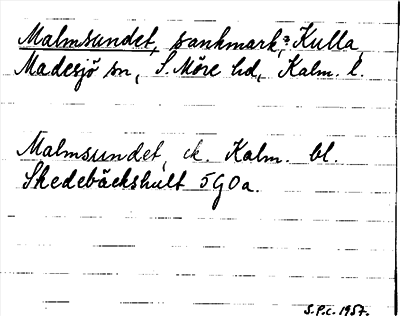 Malmsundet, sankmark, Kulla,
Madesjö sn, S. Möre hd, Kalm. l.
Malmsundet, ek. Kalm. bl.
Skedebäckshult 5G0a.
S.P.c. 1957.